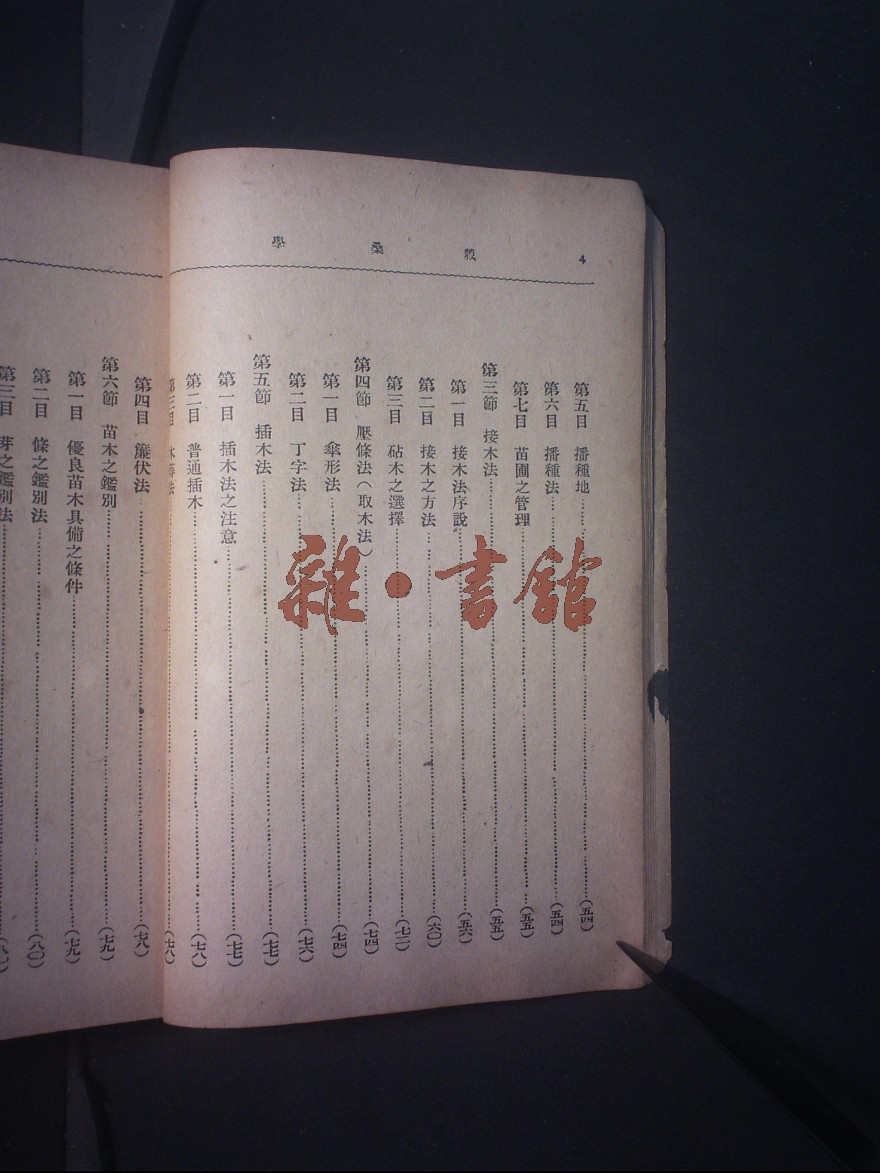 4 栽桑學
第五目 播種地……(五四)
第六目 播種法……(五四)
第七目 苗圃之管理……(五五)
第三節 接木法……(五五)
第一目 接木法序說……(五六)
第二目 接木之方法……(六〇)
第三目 砧木之選擇……(七二)
第四節 壓條法(取木法)……(七四)
第一目 傘形法……(七四)
第二目 丁字法……(七六)
第五節 插木法……(七七)
第一目 插木法之注意……(七七)
第二目 普通插木……(七八)
第三目……(七八)
第四目 簾伏法……(七八)
第六節 苗木之鑑別……(七九)
第一目 優良苗木具備之條件……(七九)
第二目 條之鑑別法……(八〇)
第三目 芽之鑑別法……(八
雜·書館